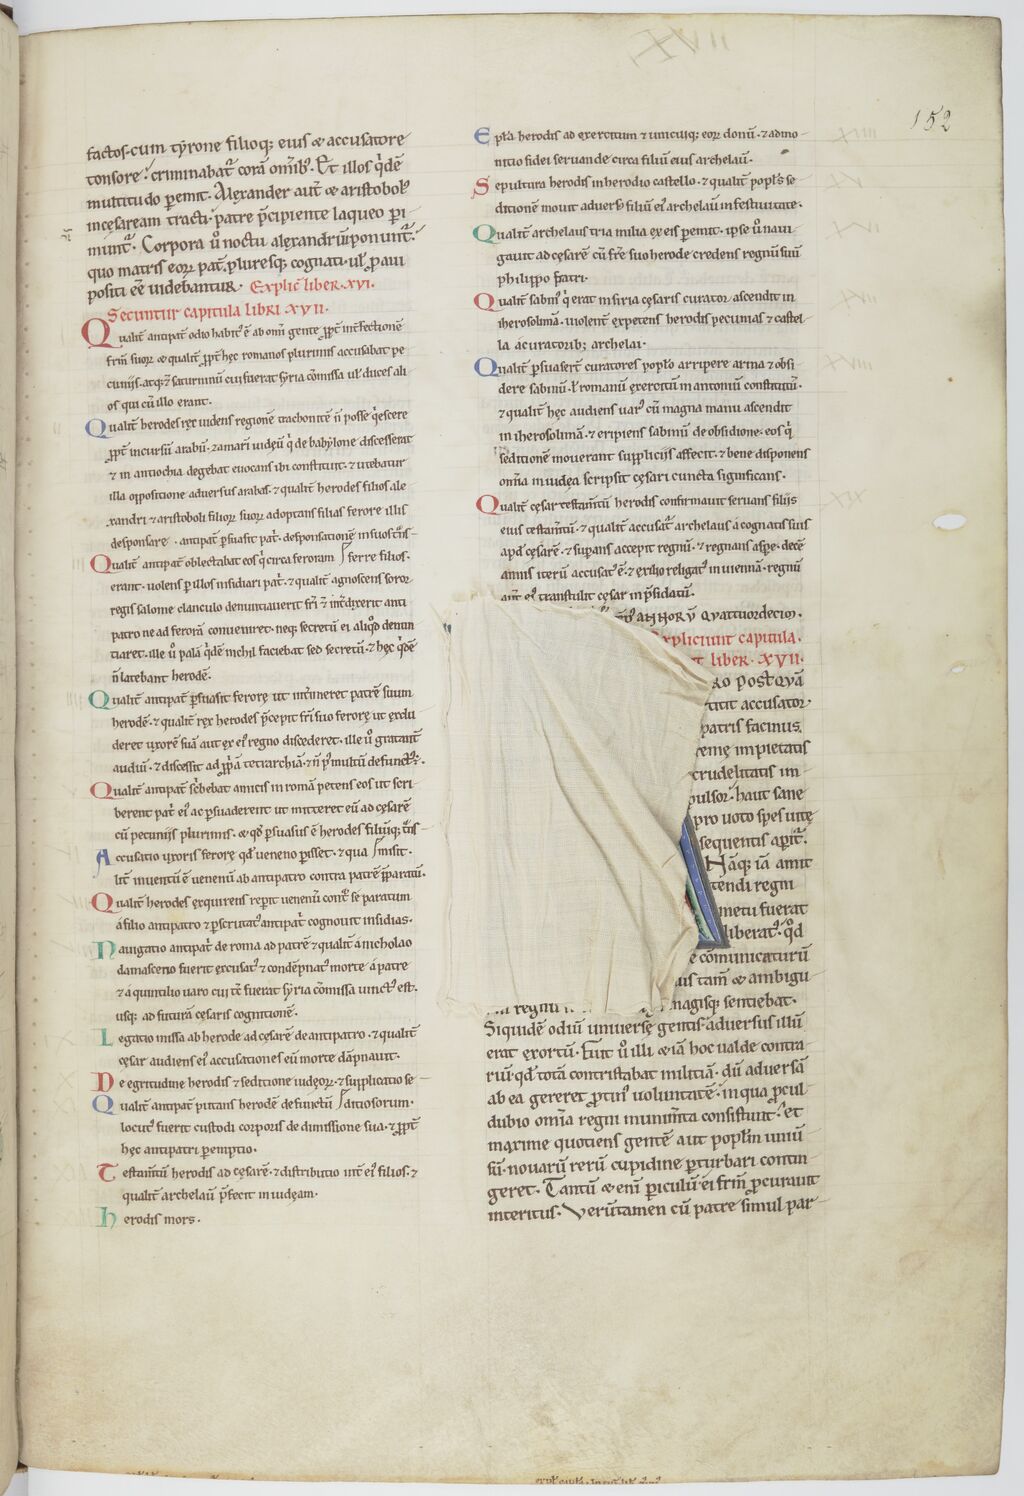 152
factos. cum tyrone filioq; eius & accusatore
tonsore. criminabat̃ corā om̃ib;. Et illos q̇dē
multitudo ꝑemit. Alexander aut̃ & aristobol᷒
incesaream tracti. patre p̃cipiente laqueo ꝑi
munt̃. Corpora ů noctu alexandriū ponunt̃.
quo matris eoꝝ pat̃. pluresq; cognati. ul̃ ꝓaui
positi eē uidebantur. Explic̃ liber. xvi.
Secuntur capitula libri. xvii.
Qualit̃ antipat̃ odio habit᷒ ē ab om̃i gente ꝓpt̃ int̃fectionē
frm̃ suoꝝ. & qualit̃ ꝓpt̃ hęc romanos plurimis accusabat pe
cuniis. atq; saturninū cui fuerat syria cōmissa ul̃ duces ali
os qui cū illo erant.
Qualit̃ herodes rex uidens regionē trachonitē ñ posse q̇escere
ꝓpt̃ incursū arabū. zamarī iudęū q̇ de babylone discesserat
⁊ in antiochia degebat euocans ibi constituit. ⁊ utebatur
illa oppositione aduersus arabas. ⁊ qualit̃ herodes filios ale
xandri ⁊ aristoboli filioꝝ suoꝝ adoptans filias ferore illis
desponsare. antipat̃ ꝑsuasit pat̃. desponsationē in suos
Qualit̃ antipat̃ oblectabat eos q̇ circa feroram ferre filios.
erant. uolens ꝑ illos insidiari pat̃. ⁊ qualit̃ agnoscens soror
regis salome clanculo denuntiauerit fr̃i ⁊ int̃dixerit anti
patro ne ad ferorā conueniret. neq; secretū ei aliq̇d denun
tiaret. ille ů palā q̇dē nichil faciebat sed secretū. ⁊ hęc q̇dē
ñ latebant herodē.
Qualit̃ antipat̃ ꝑsuasit ferorę ut int̃imeret patrē suum
herodē. ⁊ qualit̃ rex herodes p̃cepit fr̃i suo ferorę ut exclu
deret uxorē suā aut ex ei᷒ regno discederet. ille ů gratant̃
audiui. ⁊ discessit ad ꝓp̃ā tetrarchiā. ⁊ ñ p᷒ multū defunct᷒.
Qualit̃ antipat̃ sc̃bebat amicis in romā petens eos ut scri
berent pat̃ ei᷒ ac ꝑsuaderent ut mitteret eū ad cęsarē
cū pecuniis plurimis. & qd̃ ꝑsuasus ē herodes filiūq;
Accusatio uxoris ferorę qd̃ ueneno ꝑisset. ⁊ qua misit.
lit̃ inuentū ē uenenū ab antipatro contra patrē p̃paratū.
Qualit̃ herodes exquirens reꝑit uenenū cont̃ se paratum
a filio antipatro ⁊ ꝑscrutat᷒ antipat̃ cognouit insidias.
Nauigatio antipat̃ de roma ad patrē ⁊ qualit̃ a nicholao
damasceno fuerit excusat᷒ ⁊ condēpnat᷒ morte a patre
⁊ a quintilio uaro cui tc̃ fuerat syria cōmissa uinct᷒ est.
usq; ad futurā cęsaris cognitionē.
Legatio missa ab herode ad cęsarē de antipatro. ⁊ qualit̃
cęsar audiens ei᷒ accusationes eū morte dāpnauit.
De egritudine herodis ⁊ seditione iudęoꝝ. ⁊ supplicatio se
Qualit̃ antipat̃ putans herodē defunctū ditiosorum.
locut᷒ fuerit custodi corporis de dimissione sua. ⁊ ꝓpt̃
hęc antipatri ꝑemptio.
Testam̃tū herodis ad cęsarē. ⁊ distributio int̃ ei᷒ filios. ⁊
qualit̃ archelaū p̃fecit in iudęam.
Herodis mors.
Epl̃a herodis ad exercitum ⁊ unicuiq; eoꝝ donū. ⁊ admo
nitio fidei seruande circa filiū eius archelaū.
Sepultura herodis in herodio castello. ⁊ qualit̃ popl̃s se
ditionē mouit aduers᷒ filiū ei᷒ archelaū in festiuitate.
Qualit̃ archelaus tria milia ex eis ꝑemit. ipse ů naui
gauit ad cęsarē cū fr̃e suo herode credens regnū suū
philippo fratri.
Qualit̃ sabin᷒ q̇ erat in siria cęsaris curator ascendit in
iherosolimā. uiolent̃ expetens herodis pecunias ⁊ castel
la a curatorib; archelai.
Qualit̃ ꝑsuaser̃t curatores popl̃o arripere arma ⁊ obsi
dere sabinū. ⁊ romanū exercitū in antoniū constitutū.
⁊ qualit̃ hęc audiens uar᷒ cū magna manu ascendit
in iherosolimā. ⁊ eripiens sabinū de obsidione. eos q̇
seditionē mouerant suppliciis affecit. ⁊ bene disponens
om̃ia in iudęa scripsit cęsari cuncta significans.
Qualit̃ cęsar testam̃tū herodis confirmauit seruans filiis
eius testam̃tū. ⁊ qualit̃ accusat᷒ archelaus a cognatis suis
apd̃ cęsarē. ⁊ suꝑans accepit regnū. ⁊ regnans aspe. decē
annis iterū accusat᷒ ē. ⁊ exilio religat᷒ in uiennā. regnū
aut̃ ei᷒ transtulit cęsar in p̃sidatū.
annorū quattuordecim.
Expliciunt capitula.
liber. xvii.
postquā
accusator
patris facinus.
impietatis
crudelitatis im
pulsor. haut sane
pro uoto spes uitę
sequentis apit̃.
Nāq; iā amit
tendi regni
metu fuerat
liberat᷒. qd̃
cōmunicaturū
tam̃ & ambigu
regni magisq; sentiebat.
Siquidē odiū uniuersę gentis aduersus illū
erat exortū. Fuit ů illi & iā hoc ualde contra
riū. qd̃ totā contristabat militiā. dū aduersā
ab ea gereret ꝓtin᷒ uoluntatē. in qua ꝓcul
dubio om̃ia regni munim̃ta consistunt. & 
maxime quotiens gentē aut popl̃m uniū
sū. nouarū rerū cupidine ꝑturbari contin
geret. Tantū & enī ꝑiculū ei fr̃m ꝓcurauit
interitus. Verūtamen cū patre simul par